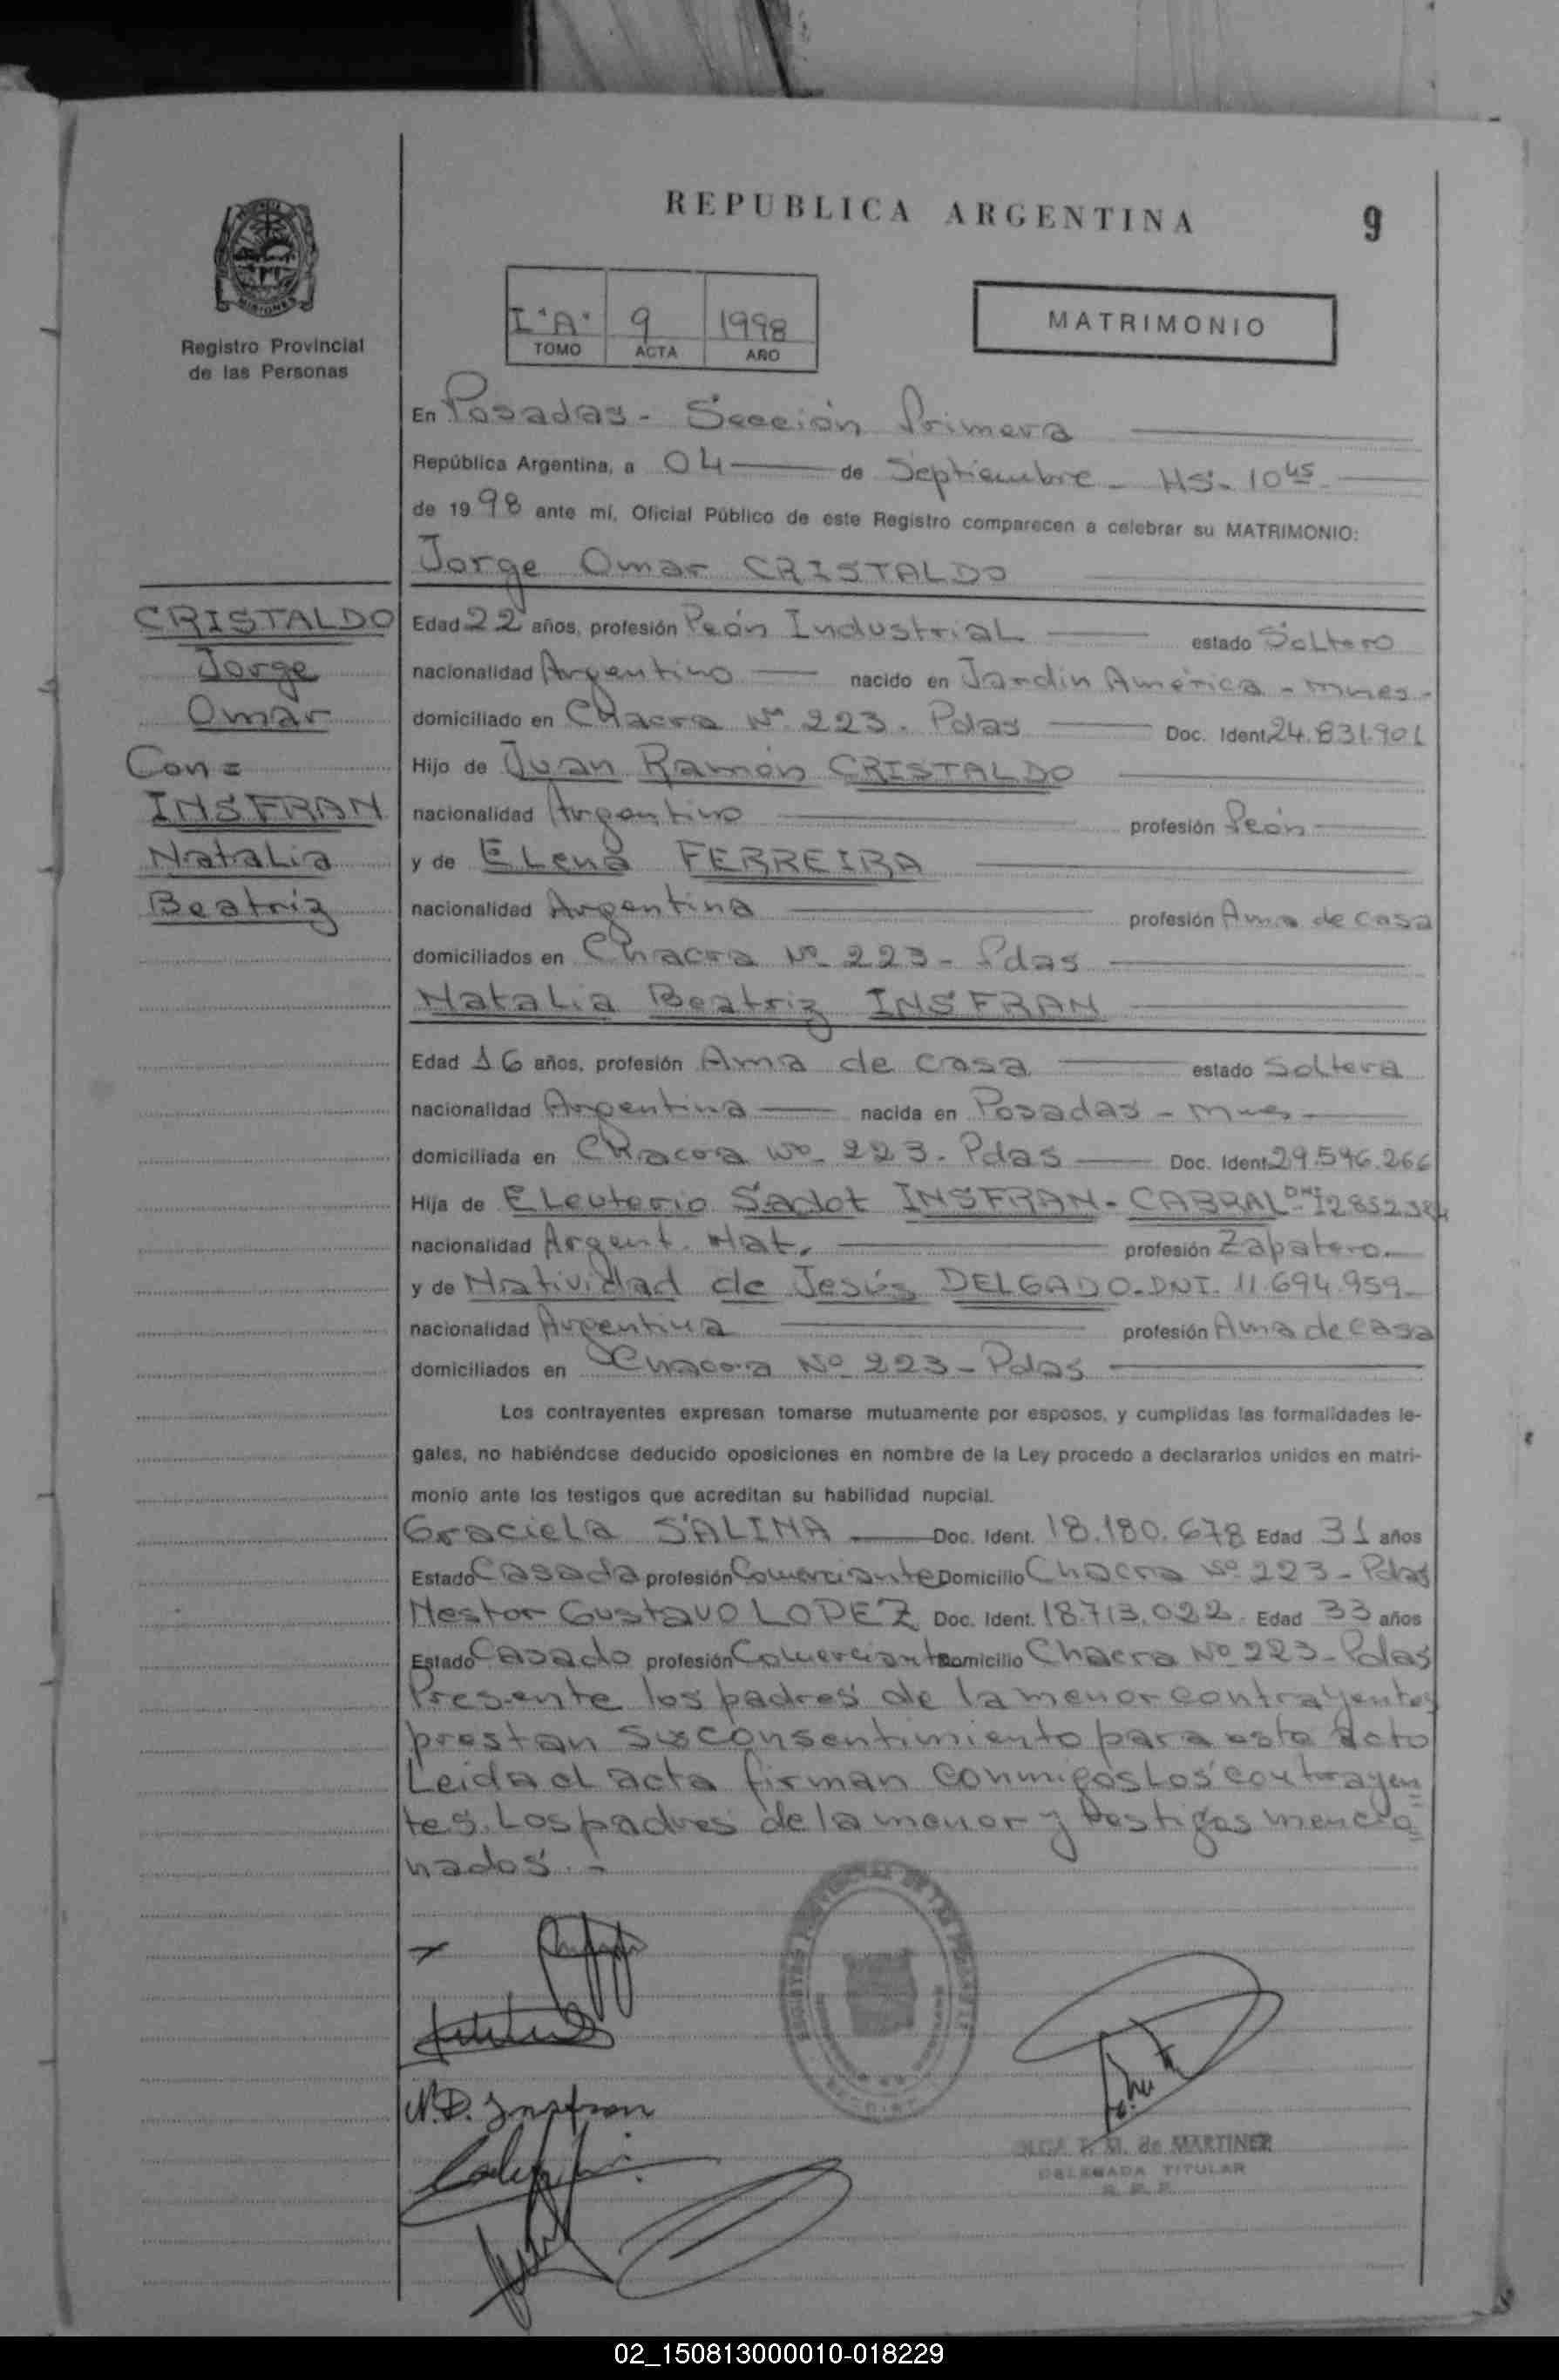 REPUBLICA ARGENTINA
9
MISIONES
Registro Provincial
de las Personas
I "A" 9 1998
TOMO ACTA AÑO
MATRIMONIO
En Posadas - Sección Primera
República Argentina, a 04 de Septiembre - HS. 10 45
de 1998 ante mí, Oficial Público de este Registro comparecen a celebrar su MATRIMONIO:
Jorge Omar CRISTALDO
CRISTALDO
Jorge
Omar
Con =
INSFRAN
Natalia
Beatriz
Edad 22 años, profesión Peón Industrial estado Soltero
nacionalidad Argentino nacido en Jardin América - Mnes.
domiciliado en Chacra Nº 223. Pdas Doc. Ident. 24.831.901
Hijo de Juan Ramón CRISTALDO
nacionalidad Argentino profesión Peón
y de Elena FERREIRA
nacionalidad Argentina profesión Ama de casa
domiciliados en Chacra Nº 223 - Pdas
Natalia Beatriz INSFRAN
Edad 16 años, profesión Ama de casa estado Soltera
nacionalidad Argentina nacida en Posadas - Mnes
domiciliada en Chacra Nº 223. Pdas Doc. Ident. 29.596.266
Hija de Eleuterio Sadot INSFRAN - CABRAL DNI 12852384
nacionalidad Argent. Nat. profesión Zapatero.
y de Natividad de Jesús DELGADO. DNI. 11.694.959
nacionalidad Argentina profesión Ama de casa
domiciliados en Chacra Nº 223 - Pdas
Los contrayentes expresan tomarse mutuamente por esposos, y cumplidas las formalidades le-
gales, no habiéndose deducido oposiciones en nombre de la Ley procedo a declararlos unidos en matri-
monio ante los testigos que acreditan su habilidad nupcial.
Graciela SALINA Doc. Ident. 18.180.678 Edad 31 años
Estado Casada profesión Comerciante Domicilio Chacra Nº 223 - Pdas
Nestor Gustavo LOPEZ Doc. Ident. 18.713.022 Edad 33 años
Estado Casado profesión Comerciante Domicilio Chacra Nº 223 - Pdas
Presente los padres de la menor contrayentes
prestan su consentimiento para este acto
Leida el acta firman conmigo Los contrayen=
tes. Los padres de la menor y testigos mencio=
nados. -
N.B. Insfran
de MARTINEZ
DELEGADA TITULAR
R. P. P.
02_150813000010-018229